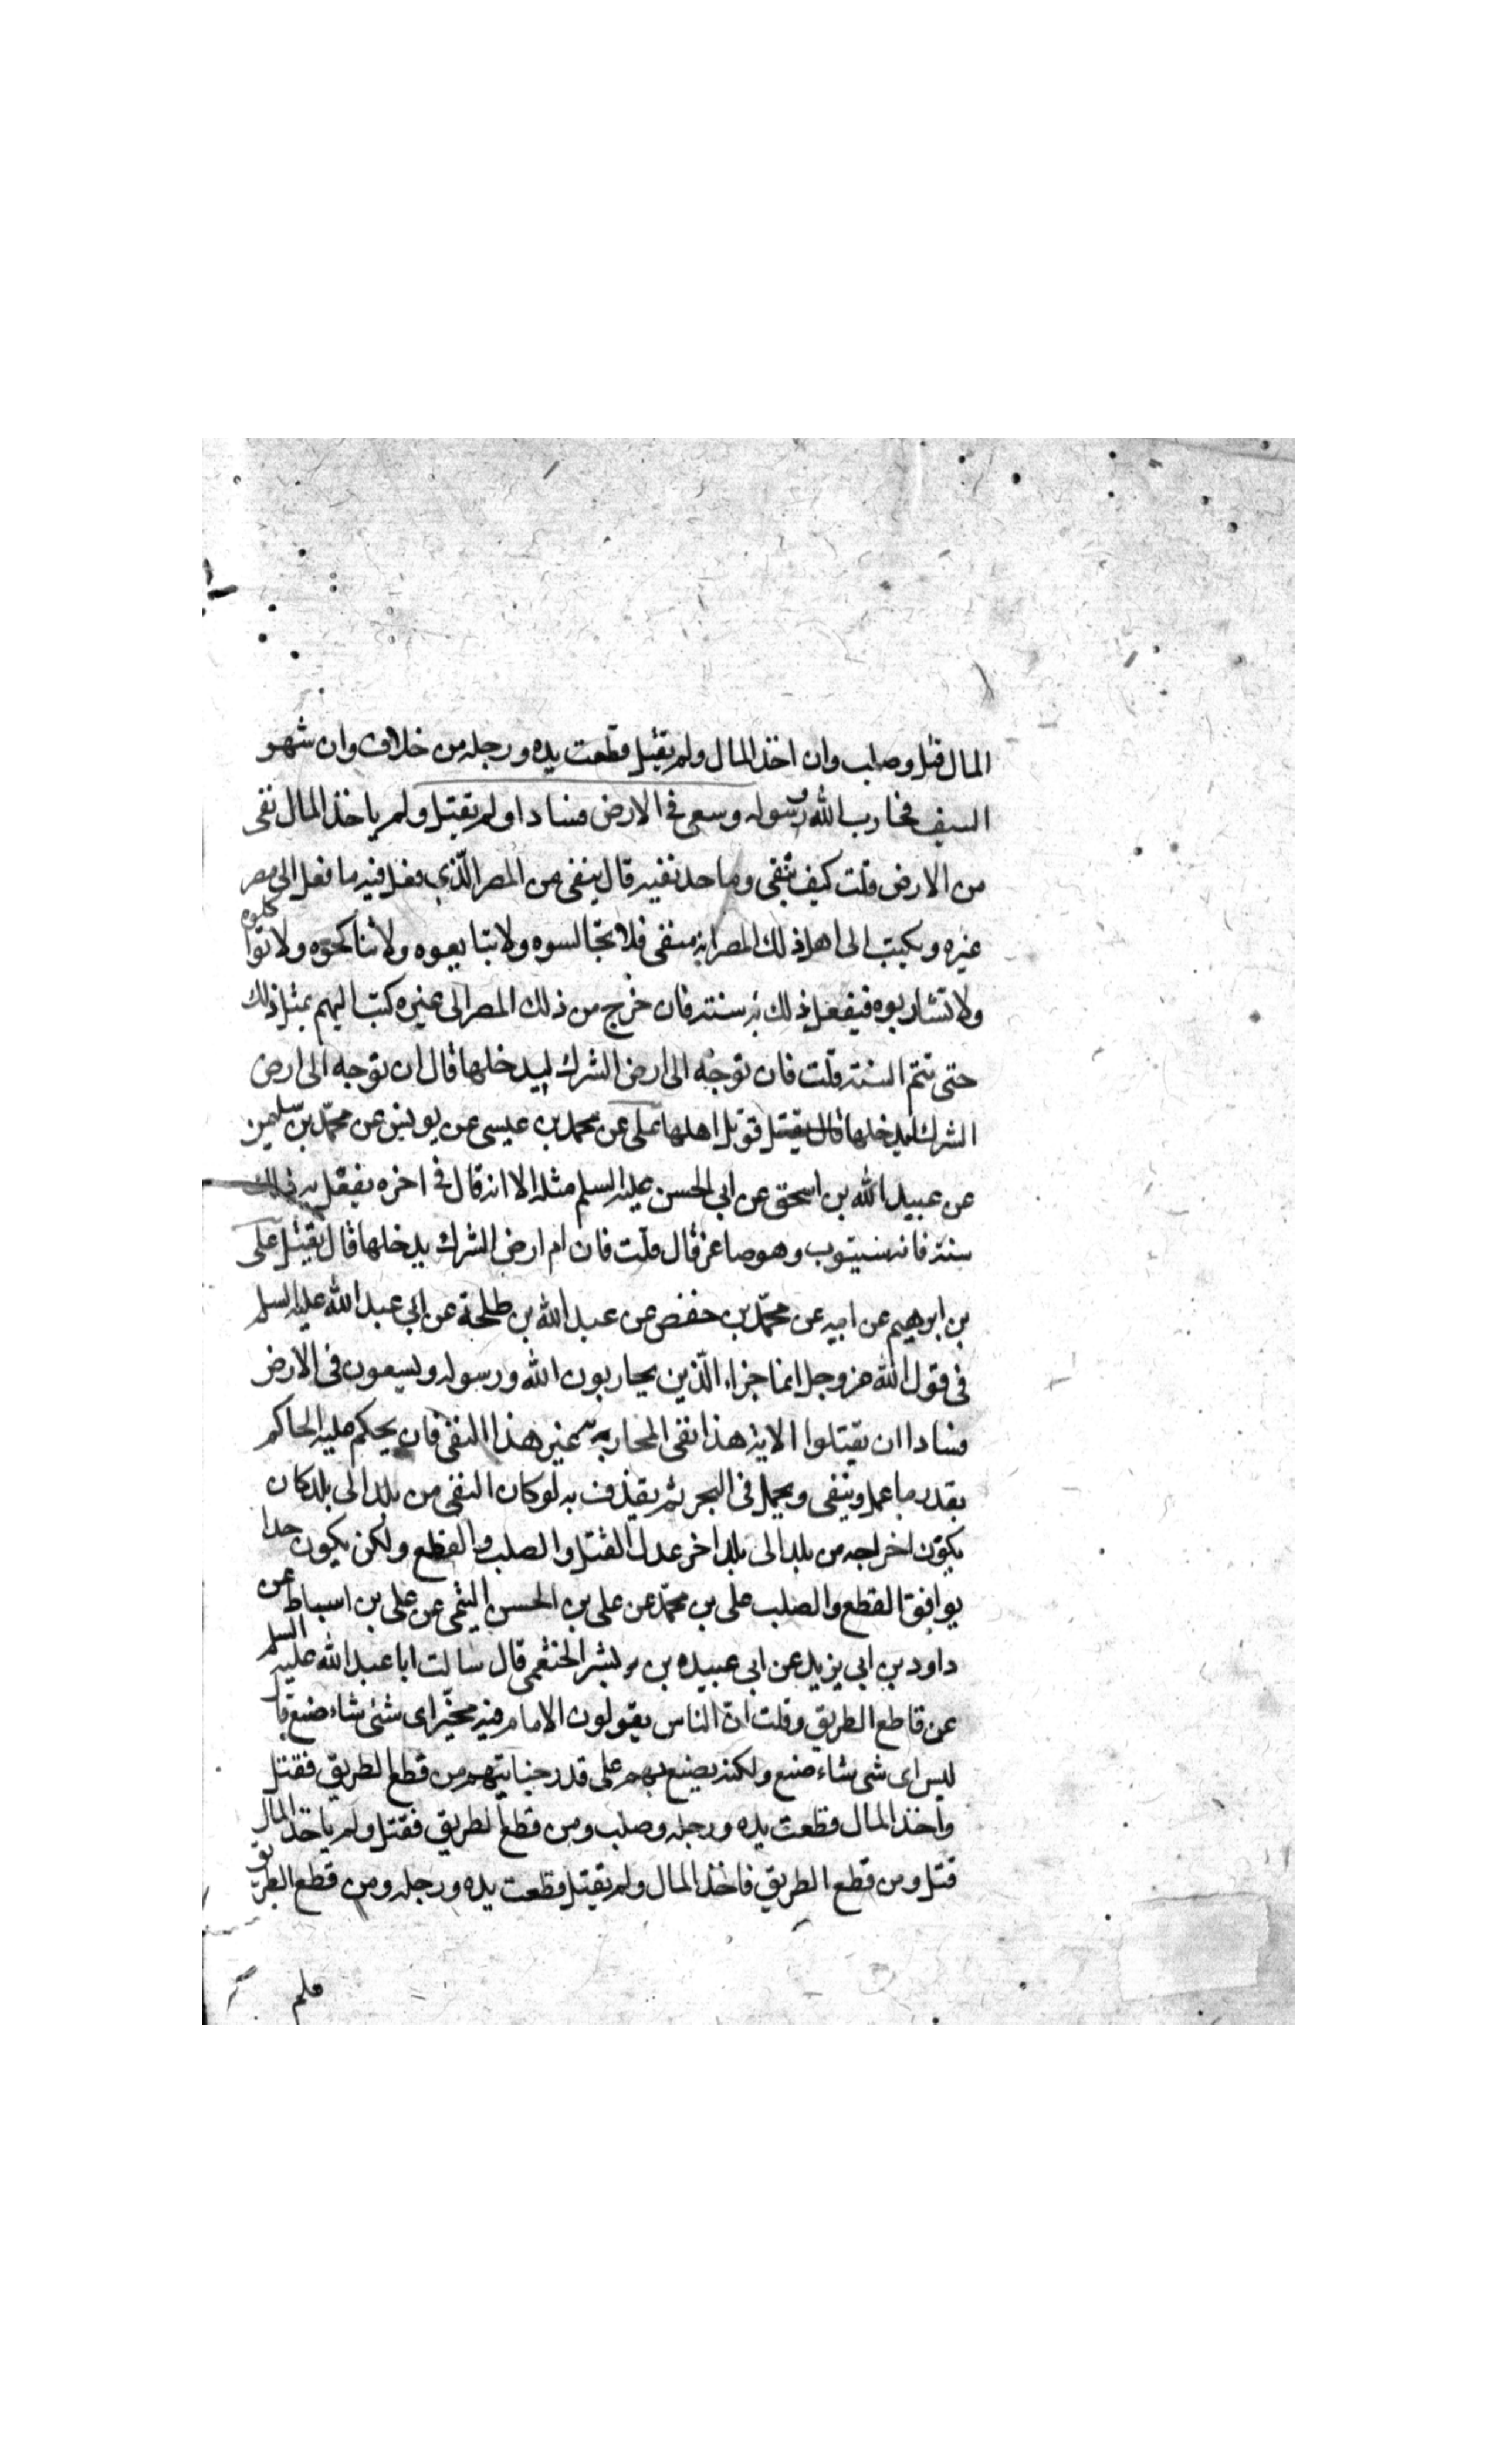 المال قتل وصلب وان اخذ المال ولم يقتل قطعت يده ورجله من خلاف وان شهر
السيف فحارب الله ورسوله وسعى في الارض فسادا ولم يقتل ولم ياخذ المال نفى
من الارض قلت كيف ينفى وما حد نفيه قال ينفى من المصر الذي فعل فيه ما فعل الى مصر
غيره ويكتب الى اهل ذلك المصر انه منفى فلا تجالسوه ولا تبايعوه ولا تناكحوه ولا تواكلوه
ولا تشاربوه فيفعل ذلك به سنته فان خرج من ذلك المصر الى غيره كتب اليهم بمثل ذلك
حتى تتم السنته قلت فان توجه الى ارض الشرك ليدخلها قال ان توجه الى ارض
الشرك ليدخلها قال يقتل قوتل اهلها على عن محمد بن عيسى عن يونس عن محمد بن سليمن
عن عبيد الله بن اسحق عن ابى الحسن عليه السلم مثله الا انه قال في اخره يفعل به ذلك
سنته فانه سيتوب وهو صاغر قال قلت فان ام ارض الشرك يدخلها قال يقتل على
بن ابرهيم عن ابيه عن محمد بن حفص عن عبد الله بن طلحة عن ابى عبد الله عليه السلم
فى قول الله عز وجل انما جزاء الذين يحاربون الله ورسوله ويسعون فى الارض
فسادا ان يقتلوا الاية هذا نفى المحاربه غير هذا النفى فان يحكم عليه الحاكم
بقدر ما عمل وينفى ويحمل فى البحر ثم يقذف به لو كان النفى من بلد الى بلد كان
يكون اخراجه من بلد الى بلد اخر عدل القتل والصلب والقطع ولكن يكون حدا
يوافق القطع والصلب على بن محمد عن على بن الحسن التيمى عن على بن اسباط عن
داود بن ابى يزيد عن ابى عبيده بن بشر الخثعمى قال سالت ابا عبد الله عليه السلم
عن قاطع الطريق وقلت ان الناس يقولون الامام فيه مخير اى شئ شاء صنع قا
ليس اى شى شاء صنع ولكنه يصنع بهم على قدر جنايتهم من قطع الطريق فقتل
واخذ المال قطعت يده ورجله وصلب ومن قطع الطريق فقتل ولم ياخذ المال
قتل ومن قطع الطريق فاخذ المال ولم يقتل قطعت يده ورجله ومن قطع الطريق
فلم